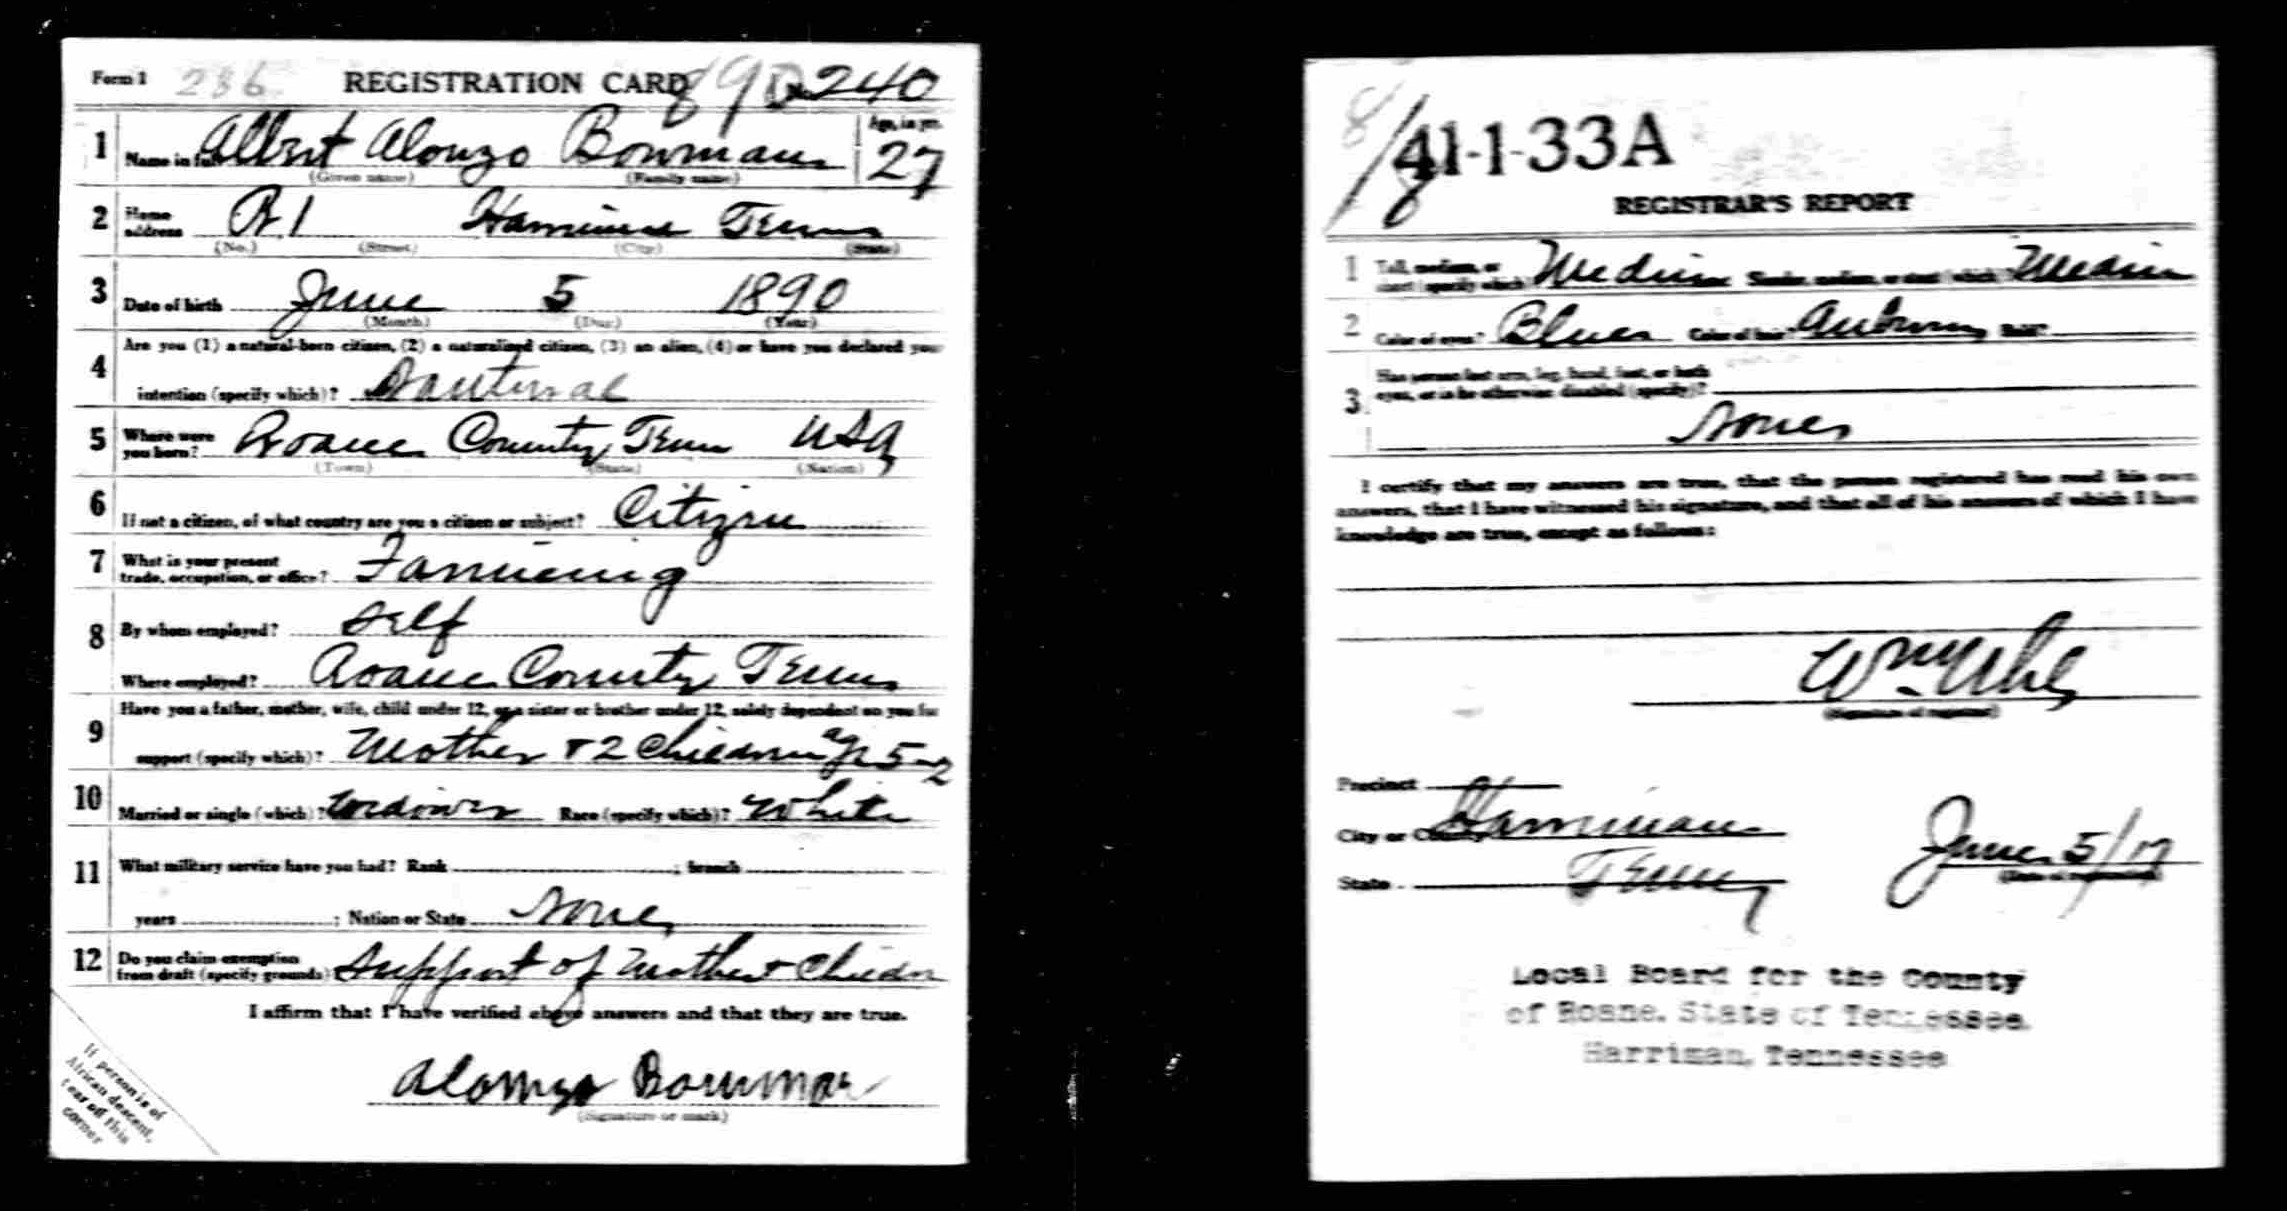 Form 1 286 REGISTRATION CARD 890 240
1 Name in full Albert Alonzo Bowman Age, in yrs. 27
(Given name) (Family name)
2 Home address R 1 Harriman Tenn
(No.) (Street) (City) (State)
3 Date of birth June 5 1890
(Month) (Day) (Year)
4 Are you (1) a natural-born citizen, (2) a naturalized citizen, (3) an alien, (4) or have you declared your
intention (specify which)? Natural
5 Where were you born? Roane County Tenn USA
(Town) (State) (Nation)
6 If not a citizen, of what country are you a citizen or subject? Citizen
7 What is your present trade, occupation, or office? Farming
8 By whom employed? Self
Where employed? Roane County Tenn
9 Have you a father, mother, wife, child under 12, or a sister or brother under 12, solely dependent on you for
support (specify which)? Mother + 2 Children age 5-2
10 Married or single (which)? Widower Race (specify which)? White
11 What military service have you had? Rank ; branch
years ; Nation or State None
12 Do you claim exemption from draft (specify grounds)? Support of Mother + Children
I affirm that I have verified above answers and that they are true.
Alonzo Bowman
(Signature or mark)
If person is of
African descent,
tear off this
corner
41-1-33A
REGISTRAR'S REPORT
1 Tall, medium, or short (specify which)? Medium Slender, medium, or stout (which)? Medium
2 Color of eyes? Blue Color of hair? Auburn Bald?
3 Has person lost arm, leg, hand, foot, or both
eyes, or is he otherwise disabled (specify)?
None
I certify that my answers are true, that the person registered has read his own
answers, that I have witnessed his signature, and that all of his answers of which I have
knowledge are true, except as follows:
Wm
(Signature of registrar)
Precinct
City or County Harriman
State Tenn June 5/17
(Date of registration)
Local Board for the County
of Roane, State of Tennessee
Harriman, Tennessee